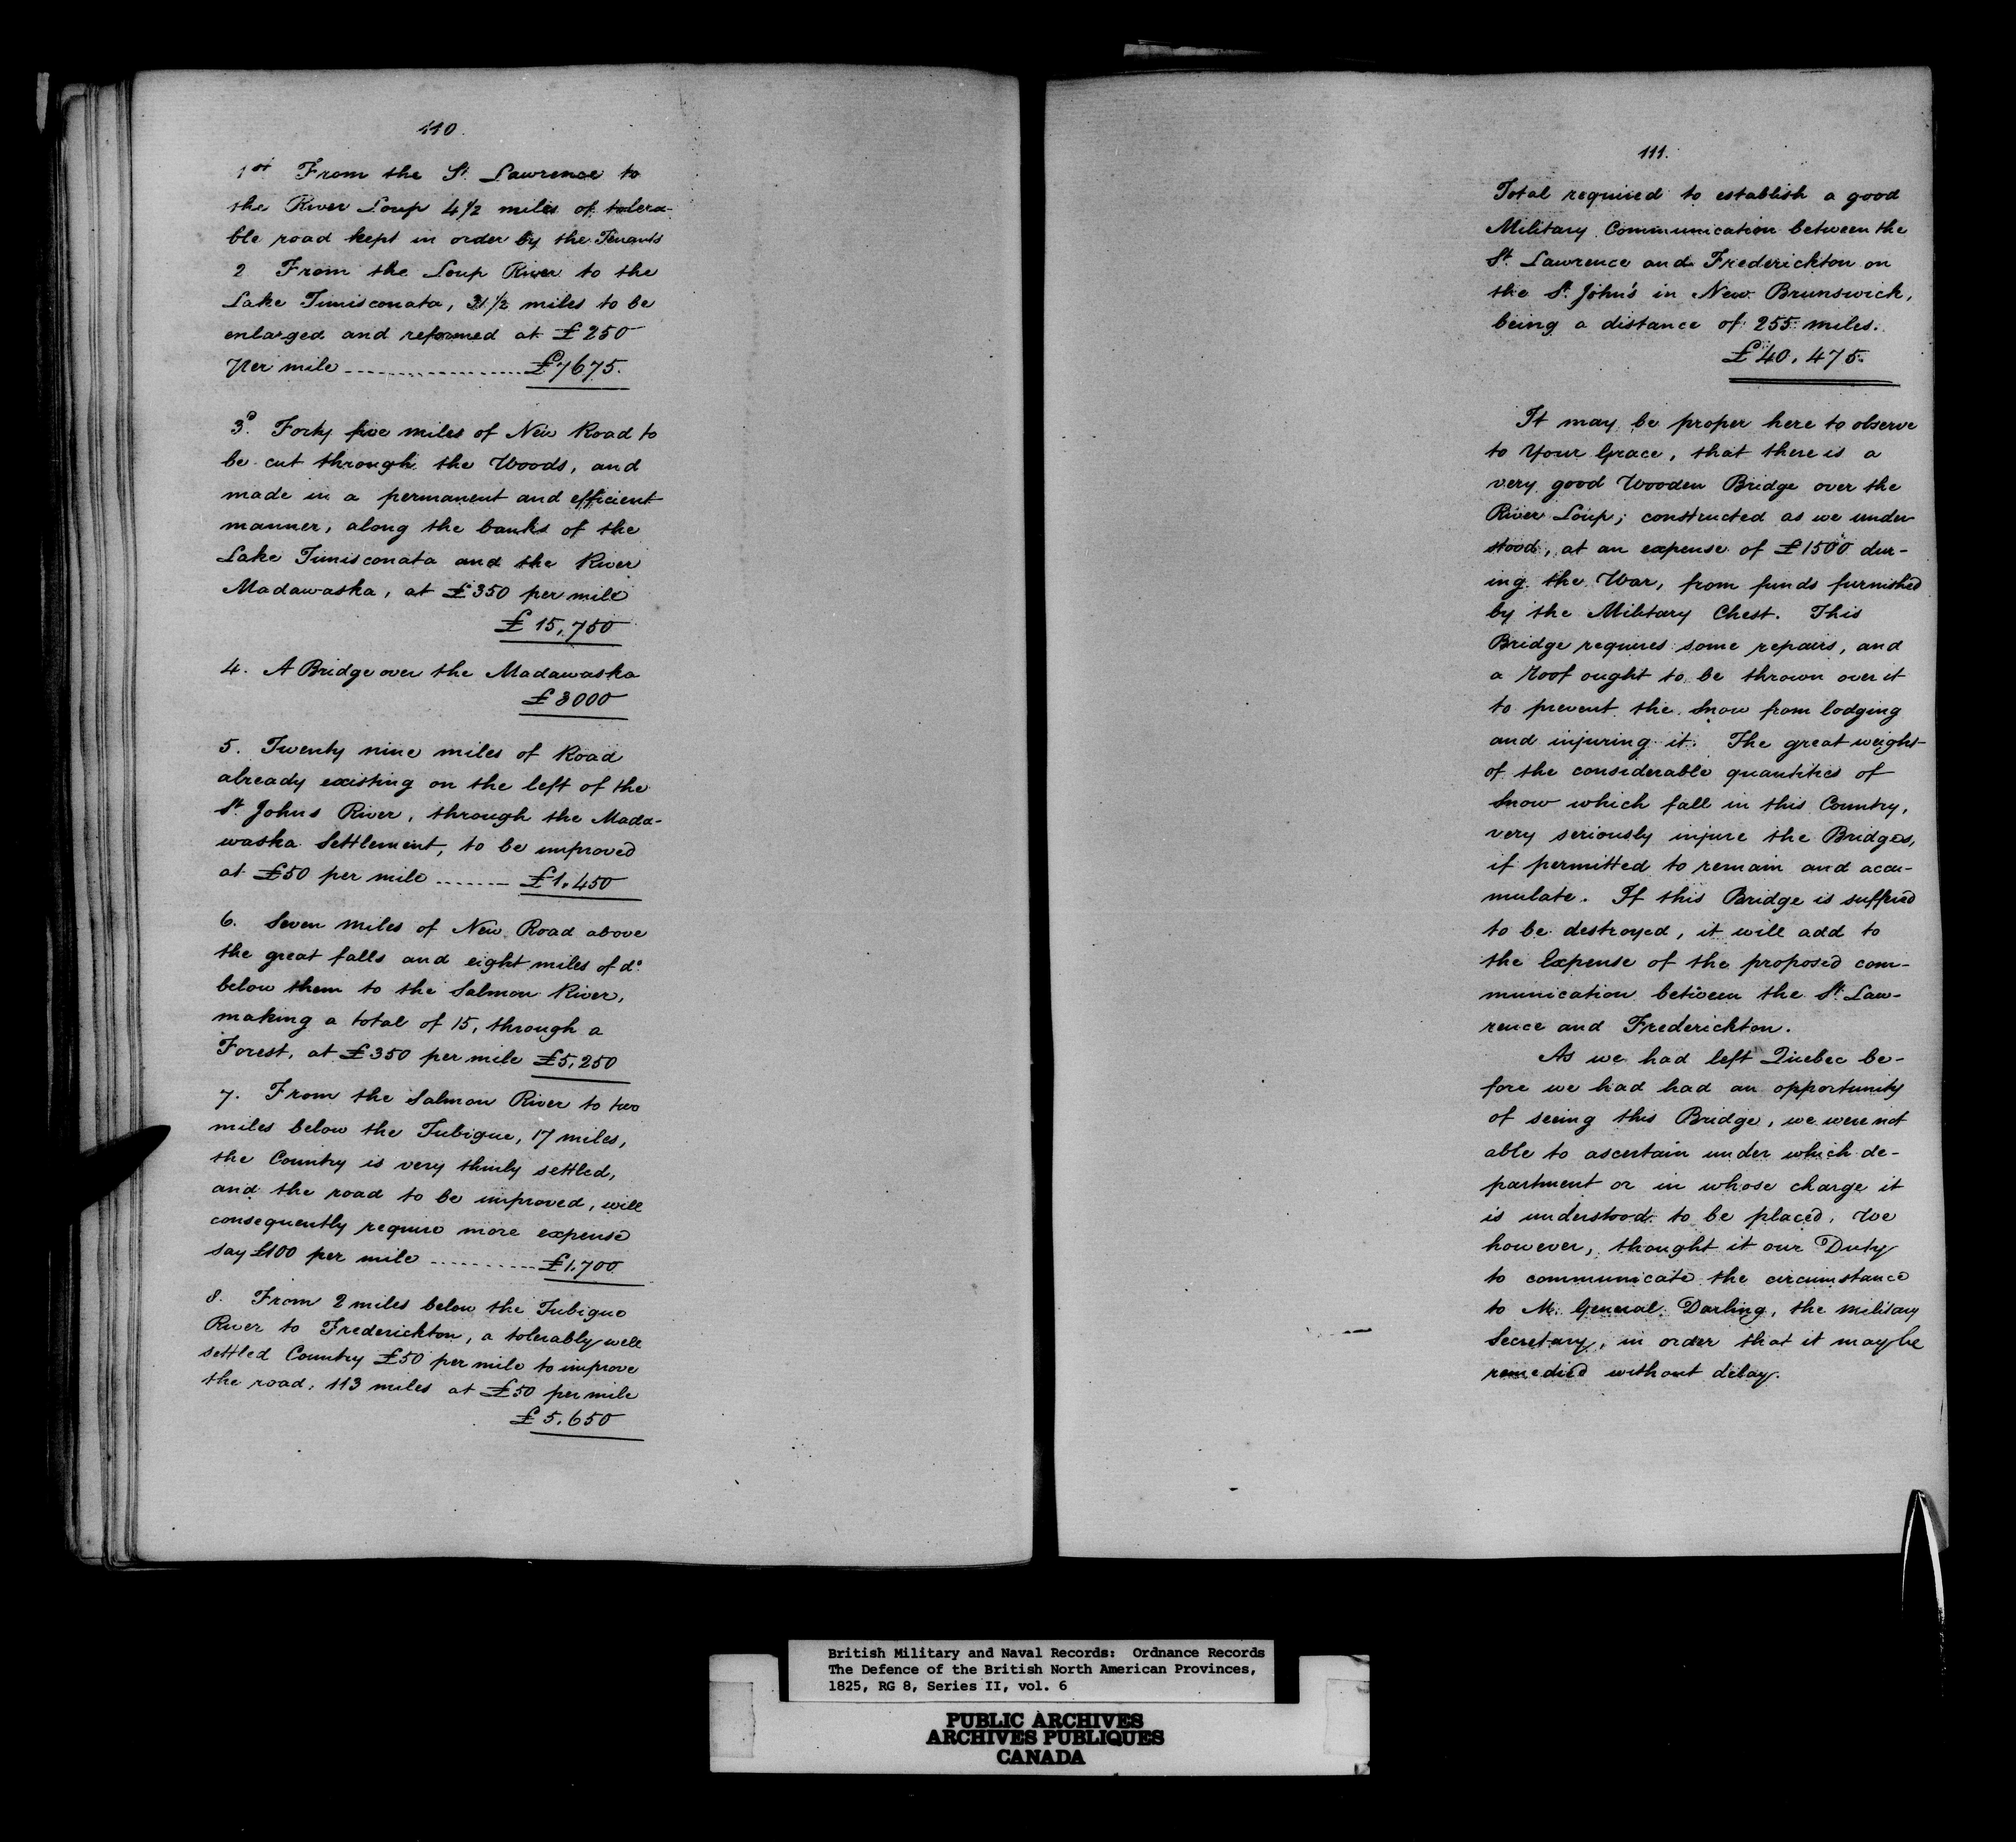 110.
1st From the St. Lawrence to
the River Loup 4 1/2 miles of tolera-
ble road kept in order by the Tenants
2 From the Loup River to the
Lake Timisconata, 31 1/2 miles to be
enlarged and reformed at £250
per mile ---------- £7675.
3d. Forty five miles of New Road to
be cut through the Woods, and
made in a permanent and efficient
manner, along the banks of the
Lake Timisconata and the River
Madawaska, at £350 per mile
£15,750
4. A Bridge over the Madawaska
£3000
5. Twenty nine miles of Road
already existing on the left of the
St. Johns River, through the Mada-
waska Settlement, to be improved
at £50 per mile ------- £1,450
6. Seven miles of New Road above
the great falls and eight miles of do.
below them to the Salmon River,
making a total of 15, through a
Forest, at £350 per mile £5,250
7. From the Salmon River to two
miles below the Tubique, 17 miles,
the Country is very thinly settled,
and the road to be improved, will
consequently require more expense
say £100 per mile ---------- £1,700
8. From 2 miles below the Tubique
River to Frederickton, a tolerably well
settled Country £50 per mile to improve
the road, 113 miles at £50 per mile
£5,650
111.
Total required to establish a good
Military Communication between the
St. Lawrence and Frederickton on
the St. John's in New Brunswick,
being a distance of 255 miles.
£40,475.
It may be proper here to observe
to Your Grace, that there is a
very good Wooden Bridge over the
River Loup; constructed as we under
stood, at an expense of £1500 dur-
ing the War, from funds furnished
by the Military Chest. This
Bridge requires some repairs, and
a roof ought to be thrown over it
to prevent the Snow from lodging
and injuring it. The great weight
of the considerable quantities of
Snow which fall in this Country,
very seriously injure the Bridges,
if permitted to remain and accu-
mulate. If this Bridge is suffered
to be destroyed, it will add to
the Expense of the proposed com-
munication between the St. Law-
rence and Frederickton.
As we had left Quebec be-
fore we had had an opportunity
of seeing this Bridge, we were not
able to ascertain under which de-
partment or in whose charge it
is understood to be placed. We
however, thought it our Duty
to communicate the circumstance
to M. General Darling, the military
Secretary, in order that it may be
remedied without delay.
British Military and Naval Records: Ordnance Records
The Defence of the British North American Provinces,
1825, RG 8, Series II, vol. 6
PUBLIC ARCHIVES
ARCHIVES PUBLIQUES
CANADA